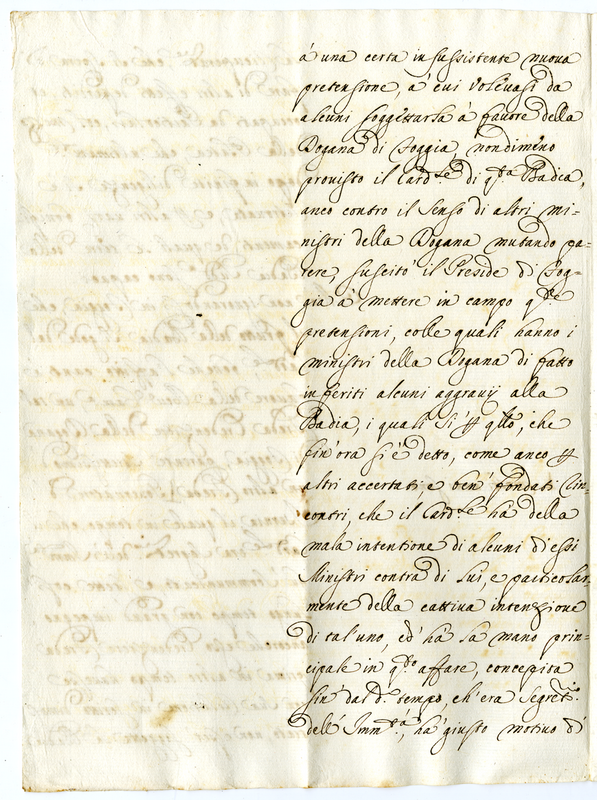 á una certa insussistente nuova
pretensione, à cui volevasi da
alcuni soggettarla à favore della
Dogana di Foggia, nondimeno
provisto il Card.le di q.ta Badia,
anco contro il senso di altri mi-
nistri della Dogana mutando pa-
rere, suscitò il Preside di Fog-
gia à mettere in campo q.te
pretensioni, colle quali hanno i
ministri della Dogana di fatto
inferiti alcuni aggravij alla
Badia, i quali si che
fin'ora si è detto, come anco
altri accertati, e ben' fondati rin-
contri, che il Card.le hà della
mala intentione di alcuni d'essi
Ministri contra di lui, e particolar
mente della cattiva intenzione
di tal'uno, ed' hà la mano prin-
cipale in q.to affare, concepita
sin' dal d.o tempo, ch'era Segret.rio
dell' Imm.tà, hà giusto motivo di